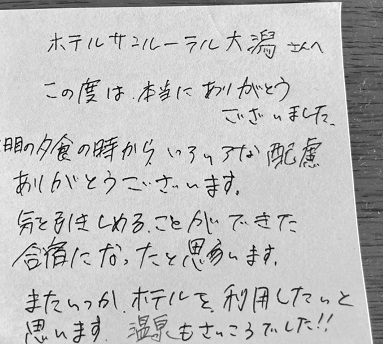 ホテルサンルーラル大潟さんへ
この度は、本当にありがとう
ございました。
日間の夕食の時から、いろいろな配慮
ありがとうございます。
気を引きしめることができた
合宿になったと思います。
またいつか、ホテルを利用したいと
思います。温泉もさいこうでした!!